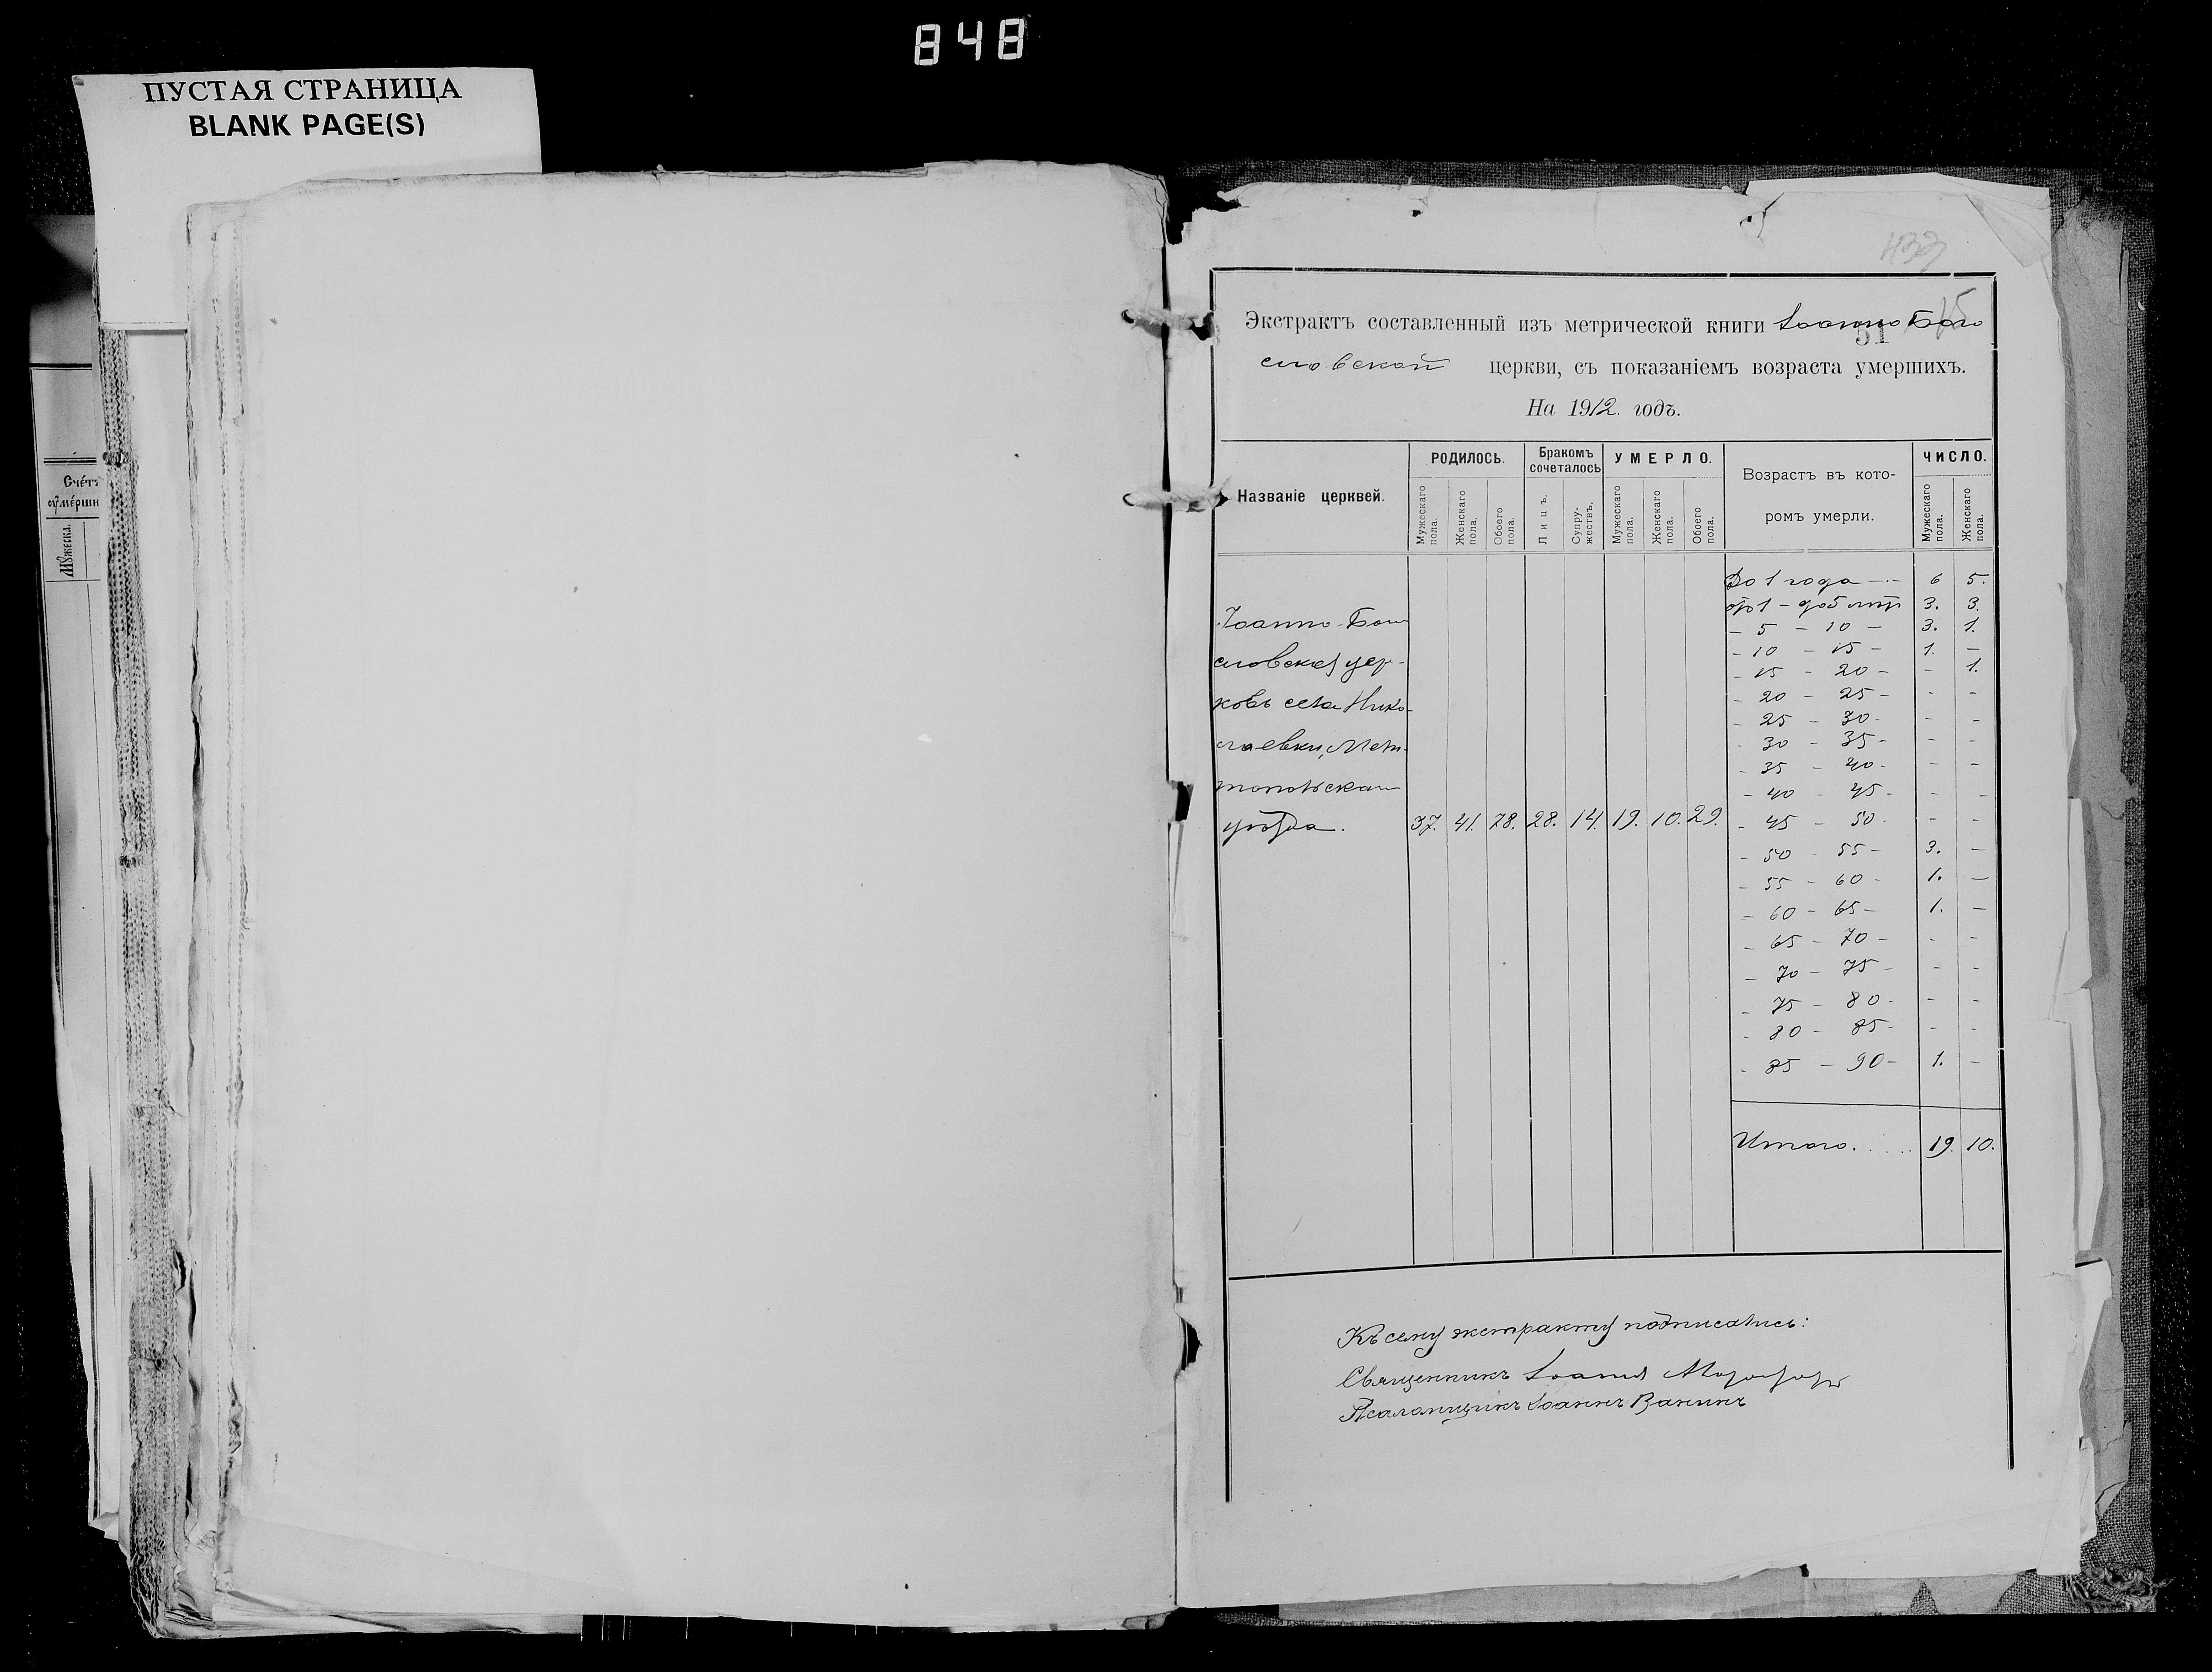 848
ПУСТАЯ СТРАНИЦА
BLANK PAGE(S)
Сче́тъ
ѹме́рши
Мꙋжеска.
433
51
Экстрактъ составленный изъ метрической книги Іоанно Бого
словской церкви, съ показаніемъ возраста умершихъ.
На 1912. годъ.
Названіе церквей.
РОДИЛОСЬ.
Мужескаго пола.
Женскаго пола.
Обоего пола.
Бракомъ сочеталось
Лицъ.
Супру-жествъ.
УМЕРЛО.
Мужескаго пола.
Женскаго пола.
Обоего пола.
Возрастъ въ кото-
ромъ умерли.
ЧИСЛО.
Мужескаго пола.
Женскаго пола.
Іоанно-Бого
словская цер-
ковь села Нико-
лаевки, Мели-
топольскаго
уѣзда. 37. 41. 78. 28. 14. 19. 10. 29.
До 1 года - - 6 5.
отъ 1 - до 5 лѣтъ 3. 3.
- 5 - 10 - 3. 1.
- 10 - 15 - 1. -
- 15 - 20 - - 1.
- 20 - 25 - - -
- 25 - 30 - - -
- 30 - 35 - - -
- 35 - 40 - - -
- 40 - 45 - - -
- 45 - 50 - - -
- 50 - 55 - 3. -
- 55 - 60 - 1. -
- 60 - 65 - 1. -
- 65 - 70 - - -
- 70 - 75 - - -
- 75 - 80 - - -
- 80 - 85 - - -
- 85 - 90 - 1. -
Итого..... 19. 10.
Къ сему экстракту подписались:
Священникъ Іоаннъ
Псаломщикъ Іоаннъ Ванинъ